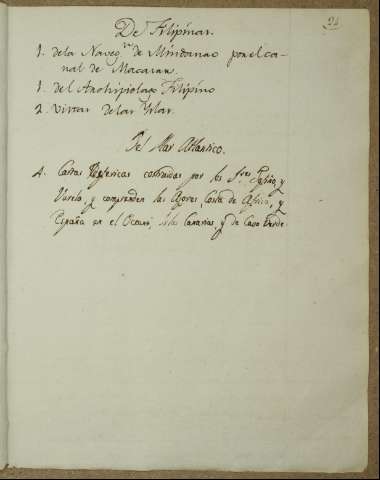 21
De Filipinas.
1. de la Navegn. de Mindanao por el ca-
nal de Macasar.
1. del Archipielago Filipino
2. vistas de las Yslas.
Del Mar Atlantico.
4. Cartas Esfericas costruidas por los Sres. Tofiño y
Varela, y comprenden las Azores, Costa de Africa, y
España en el Oceano, Yslas Canarias y de Cavo Verde.